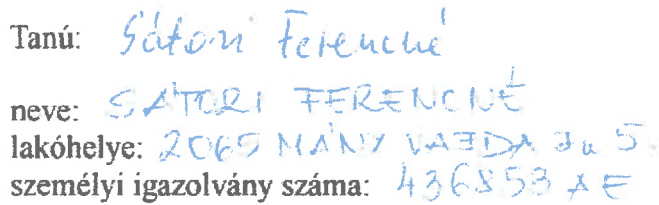 Tanú: Sátori Ferencné
neve: SÁTORI FERENCNÉ
lakóhelye: 2065 MÁNY VAJDA J u 5
személyi igazolvány száma: 436853 AE